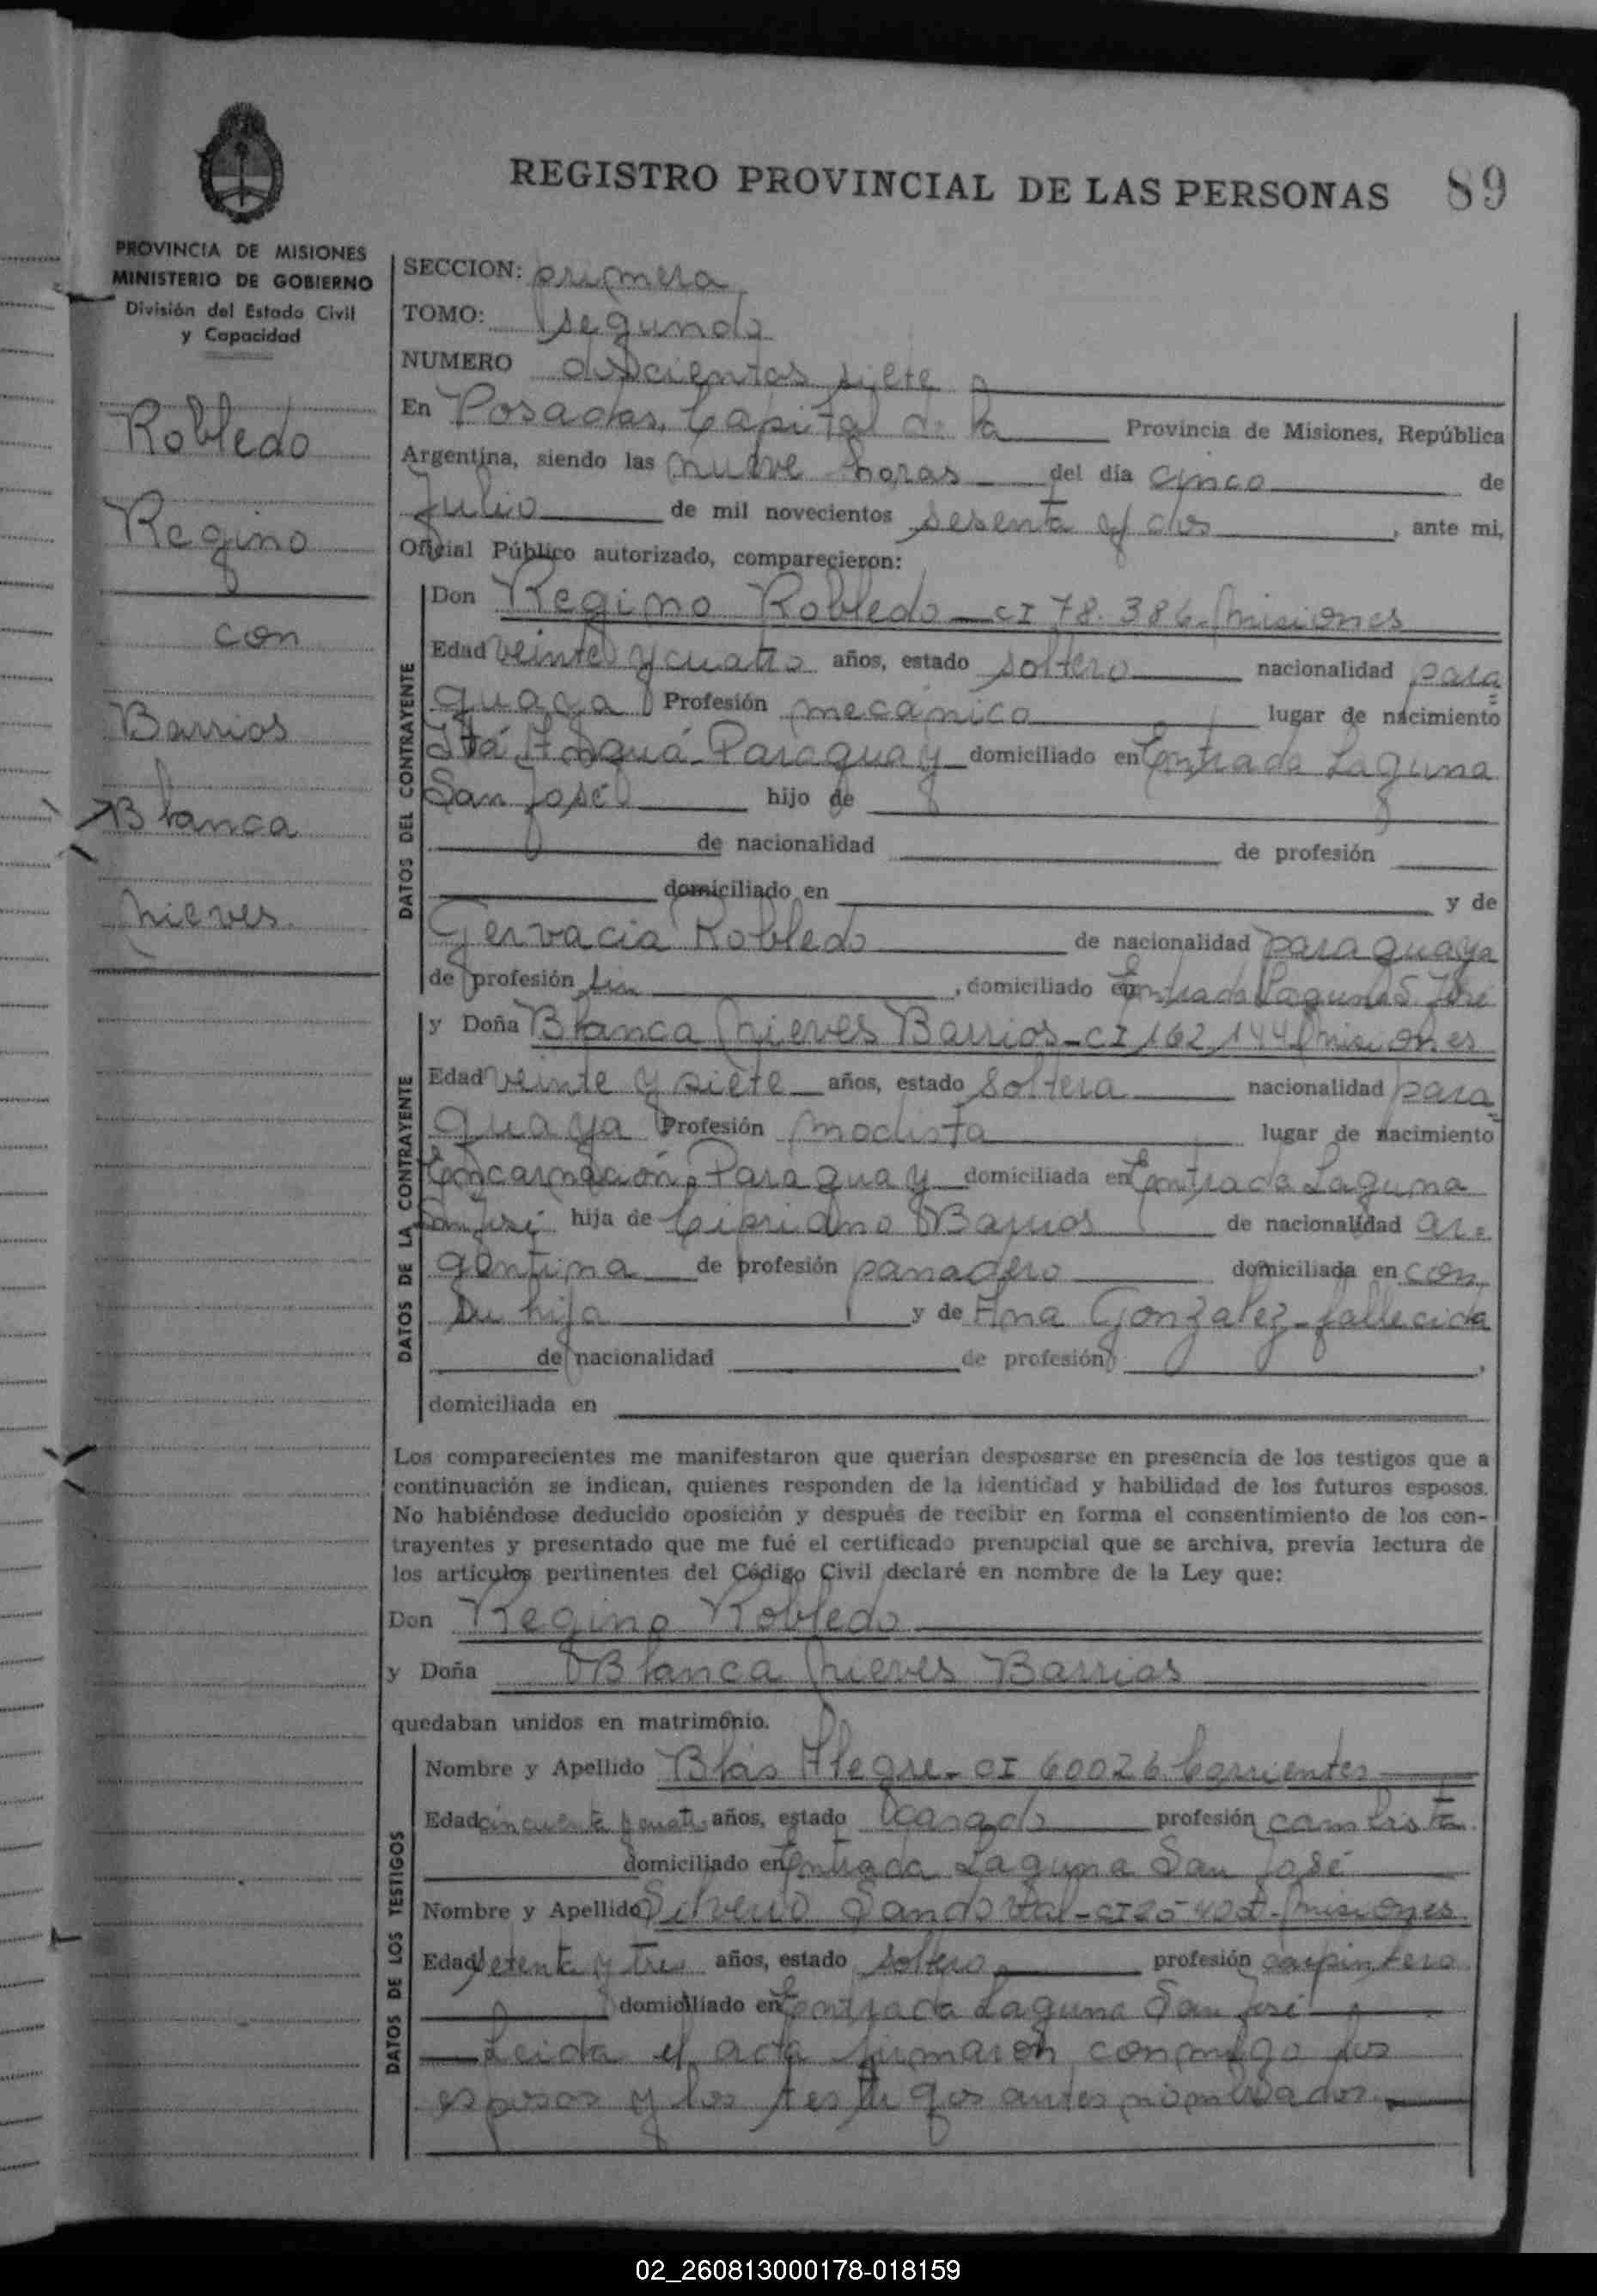 REGISTRO PROVINCIAL DE LAS PERSONAS 89
PROVINCIA DE MISIONES
MINISTERIO DE GOBIERNO
División del Estado Civil
y Capacidad
Robledo
Regino
con
Barrios
Blanca
Nieves.
SECCION: primera
TOMO: segundo
NUMERO doscientos siete
En Posadas, Capital de la Provincia de Misiones, República
Argentina, siendo las nueve horas del día cinco de
Julio de mil novecientos sesenta y dos, ante mi,
Oficial Público autorizado, comparecieron:
DATOS DEL CONTRAYENTE
Don Regino Robledo - CI 78.386. Misiones
Edad veinte y cuatro años, estado soltero nacionalidad para=
guaya Profesión mecánico lugar de nacimiento
Itá Paraguay domiciliado en Entrada Laguna
San José hijo de
de nacionalidad de profesión
domiciliado en y de
Gervacia Robledo de nacionalidad paraguaya
de profesión sin, domiciliado en Entrada Laguna S José
DATOS DE LA CONTRAYENTE
y Doña Blanca Nieves Barrios - CI 162144 Misiones
Edad veinte y siete años, estado soltera nacionalidad para=
guaya Profesión modista lugar de nacimiento
Encarnación, Paraguay domiciliada en Entrada Laguna
San José hija de Cipriano Barrios de nacionalidad ar=
gentina de profesión panadero domiciliada en con
su hija y de Ana Gonzalez - fallecida
de nacionalidad de profesión,
domiciliada en
Los comparecientes me manifestaron que querían desposarse en presencia de los testigos que a
continuación se indican, quienes responden de la identidad y habilidad de los futuros esposos.
No habiéndose deducido oposición y después de recibir en forma el consentimiento de los con-
trayentes y presentado que me fué el certificado prenupcial que se archiva, previa lectura de
los artículos pertinentes del Código Civil declaré en nombre de la Ley que:
Don Regino Robledo
y Doña Blanca Nieves Barrios
quedaban unidos en matrimonio.
DATOS DE LOS TESTIGOS
Nombre y Apellido Blás Alegre - CI 60026 Corrientes
Edad cincuenta y cuatro años, estado casado profesión cambista
domiciliado en Entrada Laguna San José
Nombre y Apellido Silverio Sandoval - CI Misiones
Edad setenta y tres años, estado soltero profesión carpintero
domiciliado en Entrada Laguna San José
Leida el acta firmaron conmigo los
esposos y los testigos antes nombrados.
02_260813000178-018159